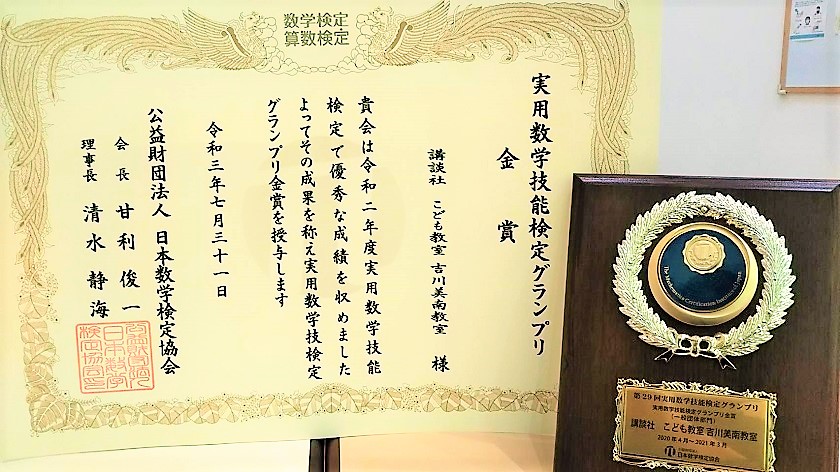 数学検定
算数検定
実用数学技能検定グランプリ
金賞
講談社 こども教室 吉川美南教室 様
貴会は令和二年度実用数学技能
検定で優秀な成績を収めました
よってその成果を称え実用数学技検定
グランプリ金賞を授与します
令和三年七月三十一日
公益財団法人 日本数学検定協会
会長 甘利俊一
理事長 清水静海
The Mathematics Certification Institute of Japan
第29回実用数学技能検定グランプリ
実用数学技能検定グランプリ金賞
(一般団体部門)
講談社 こども教室 吉川美南教室
2020年4月~2021年3月
日本数学検定協会